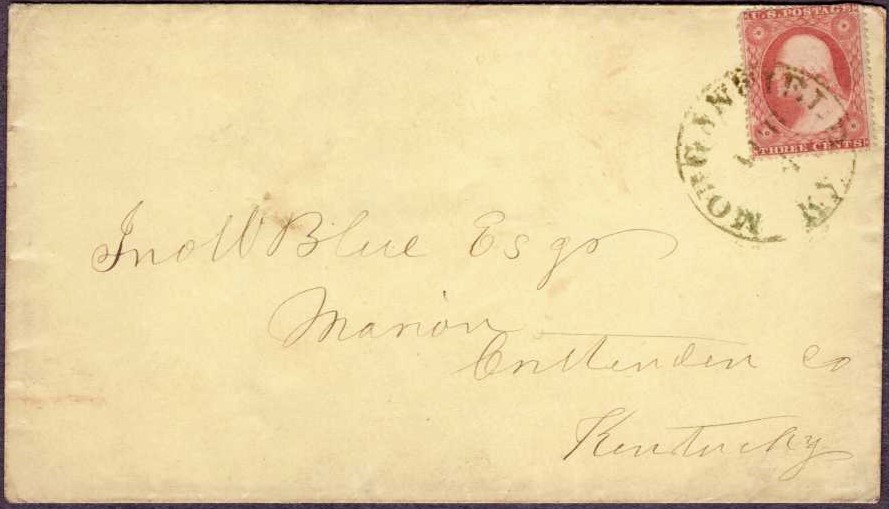 U.S. POSTAGE
THREE CENTS
MORGANFIELD
KY
Jno W Blue Esqr
Marion
Crittenden Co
Kentucky